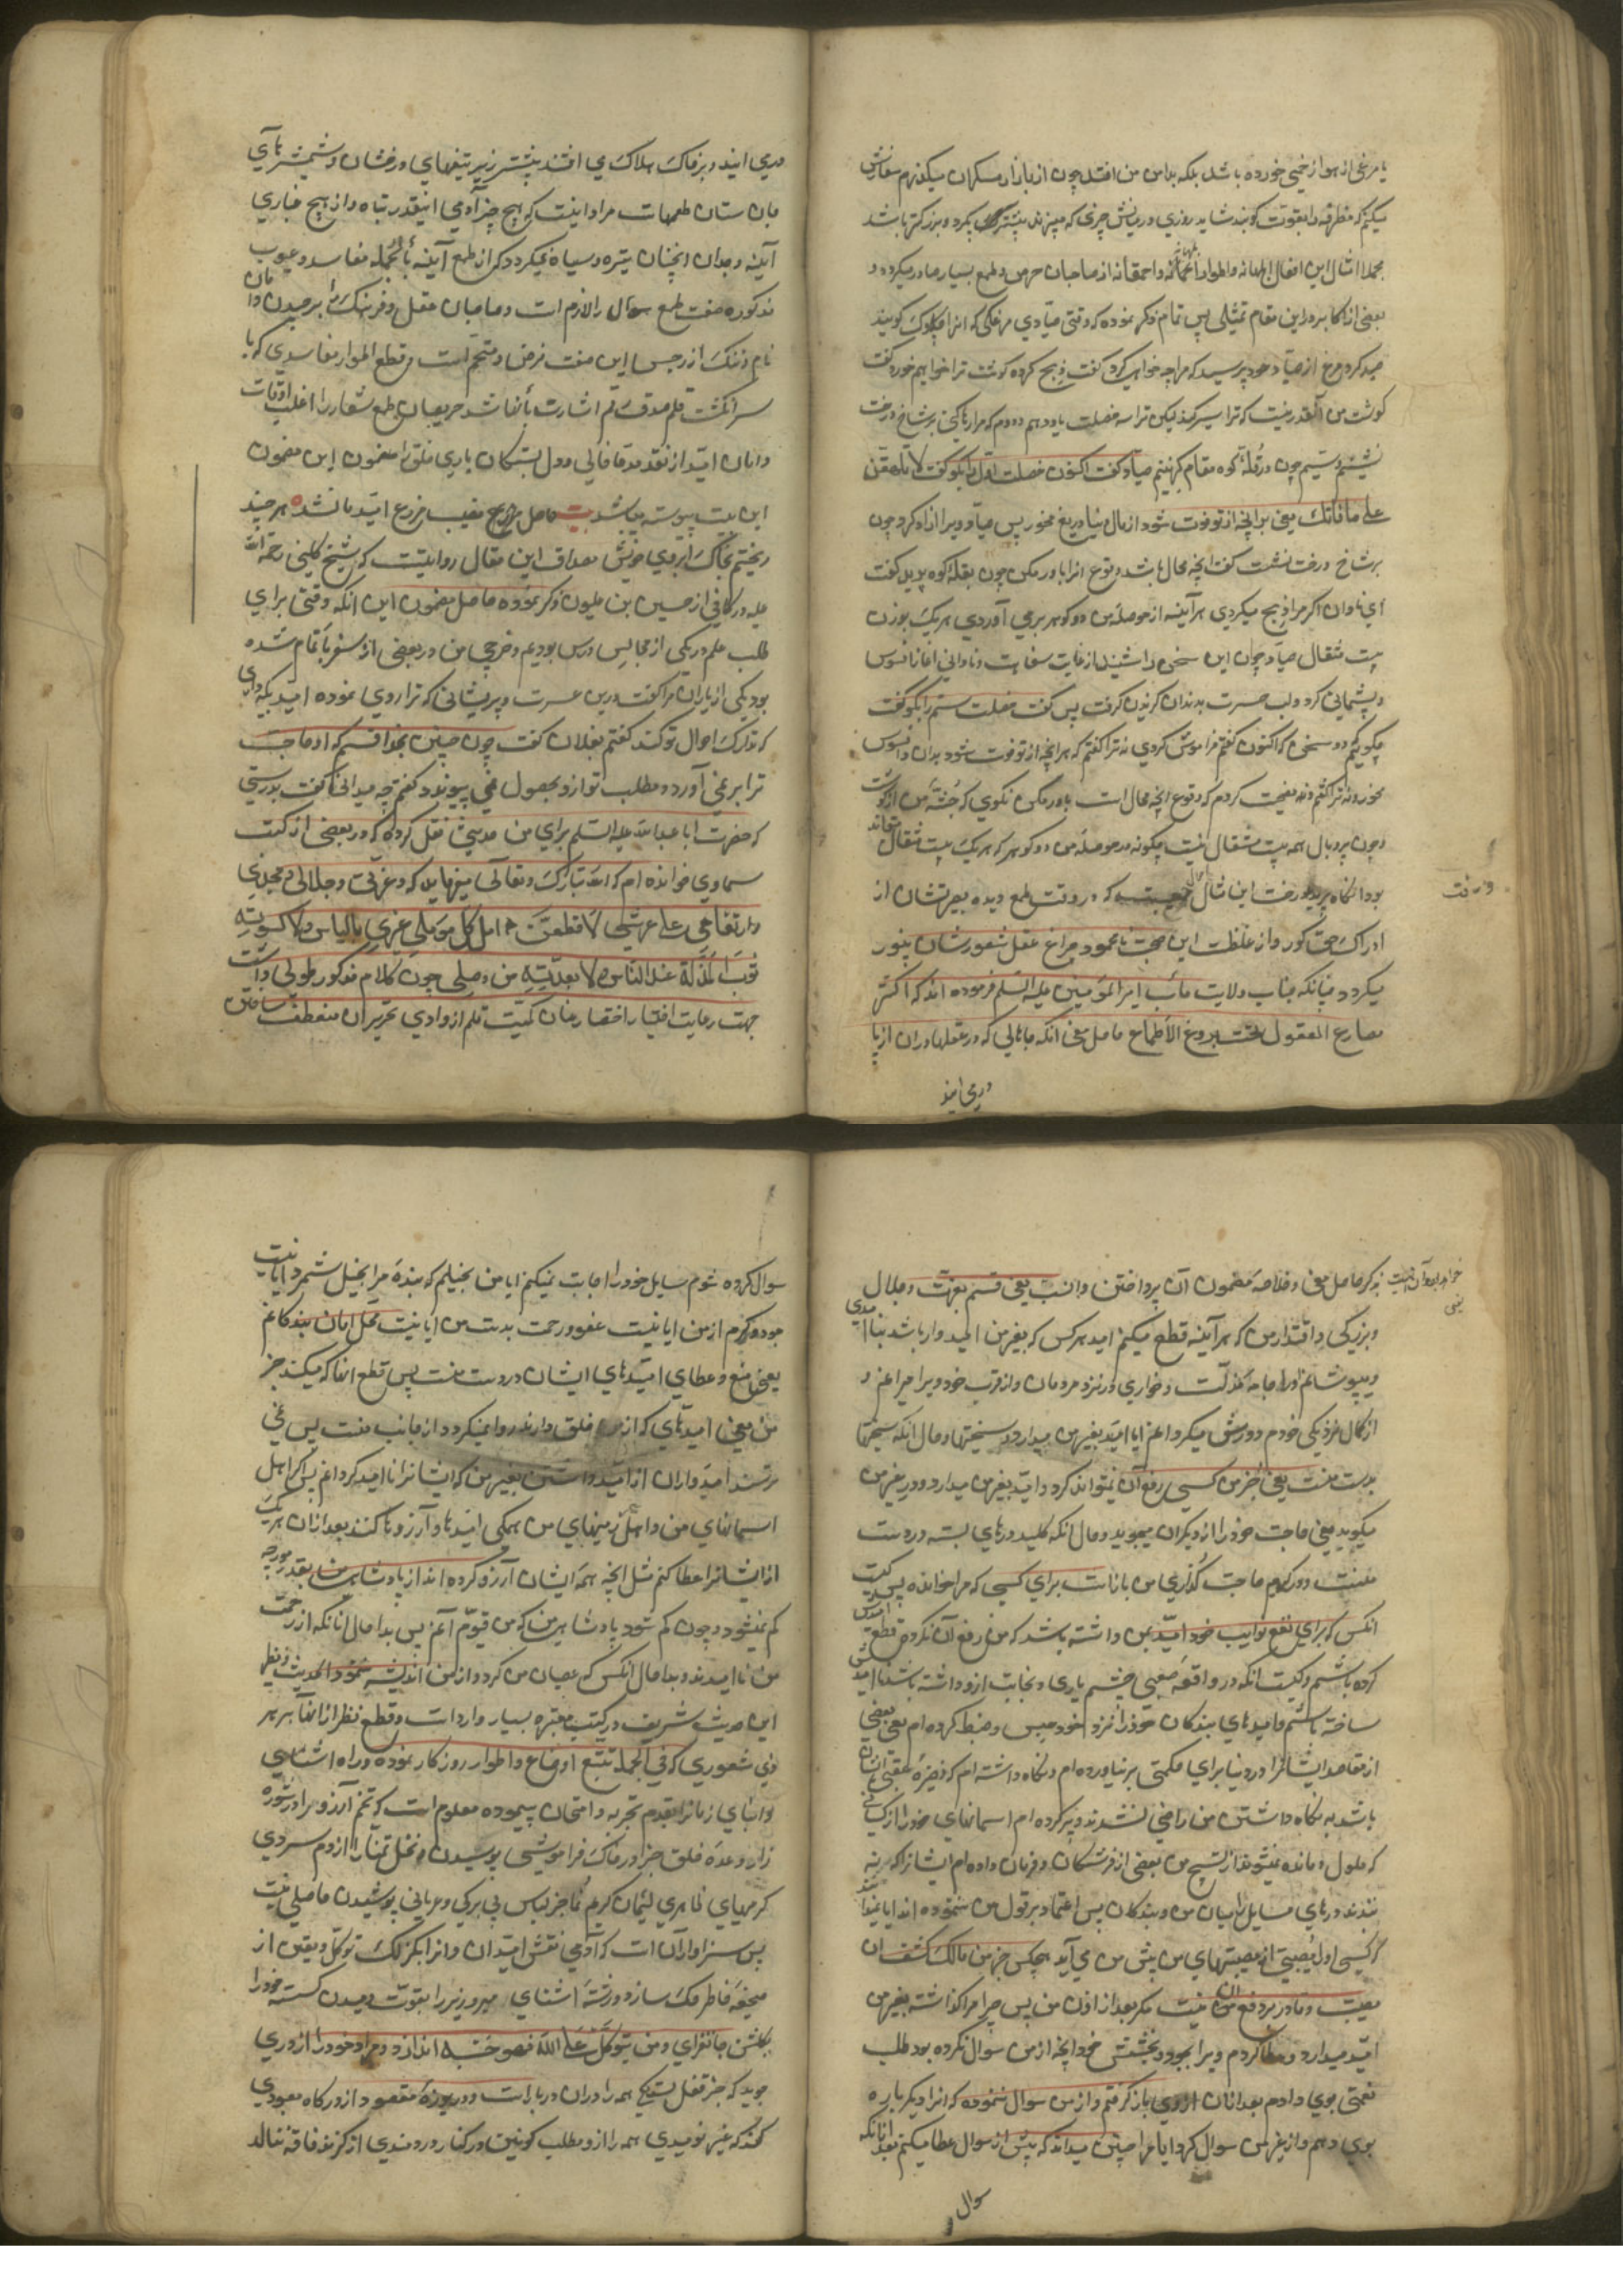 یا مرغی از هوا زخمی خورده باشد بلکه بدامن من افتد چون از بازار مسکران میکذرم سفارش
میکنم که مطرقه را بقوت کوبند شاید روزی درمیانش چیزی که میپزند بیشتر کیرد و بزرکتر باشد
مجملا امثال این افعال ابلهانه و اطوار احمقانه از صاحبان حرص و طمع بسیار صادر میکردد و
بعضی از اکابر در این مقام تمثیلی پس تمام ذکر نموده که وقتی صیادی مرغکی که انرا کویند
صید کرد مرغ از صیاد خود پرسید که مرا چه خواهی کرد کفت ذبح کرده کوشت ترا خواهم خورد کفت
کوشت من آنقدر نیست که ترا سیر کند لیکن ترا سه خصلت یاد دهم دوم که مرا رها کنی بر شاخ درخت
نشینم و سیم چون در قلّهٔ کوه مقام کزینم صیاد کفت اکنون خصلت اوّل را بکو کفت لا تلهفنّ
علی ما فاتك یعنی بر آنچه از تو فوت شود از مال دنیا دریغ مخور پس صیاد ویرا آزاد کرد چون
بر شاخ درخت نشست کفت آنچه محال باشد وقوع انرا باور مکن چون بقلهٔ کوه پرید کفت
ای نادان اکر مرا ذبح میکردی هر آینه از حوصلهٔ من دو کوهر برمی آوردی هر یک بوزن
بیست مثقال صیاد چون این سخن را شنید از غایت سفاهت و نادانی اغاز افسوس
و پشیمانی کرد و لب حسرت بدندان کزیدن کرفت پس کفت خصلت سیم را بکو کفت
چکویم دو سخن که اکنون کفتم فراموش کردی نه ترا کفتم که هر آنچه از تو فوت شود بدان افسوس
مخور و نه ترا کفتم و نصیحت کردم که وقوع آنچه محال است باور مکن نکوی که جثهٔ من از کوشت
و چون پر و بال همه بیست مثقال نیست چکونه در حوصلهٔ من دو کوهر که هر یک بیست مثقال تواند
بود انکاه پرید و رفت این مثال که در وقت طمع دیده بصیرتشان از
ادراک حق کور و از غلظت این صحبت نامحمود چراغ عقل شعورشان بینور
میکردد چنانکه جناب ولایت مآب امیر المؤمنین علیه السّلم فرموده اند که اکثر
مصارع العقول تحت بروغ الاطماع حاصل معنی آنکه جاهائی که در عقلها در ان از پا
درمی ایند
درمی ایند و بر خاک هلاک می افتند بیشتر زیر تیغهای درخشان و شمشیرهای
جان ستان طمعهاست مراد اینست که هیچ چیز آدمی اینقدر تباه و از هیچ غباری
آئینه وجدان انچنان تیره و سیاه نمیکردد که از طمع آینه بالجمله مفاسد و عیوب
مذکوره صفت طمع سوال را لازم است و صاحبان عقل و فرهنک را برچیدن دامان
نام و ننک از رجس این صفت فرض و متحتم است و قطع اطوار مفاسدی که با
سر انکشت قلم صدق رقم اشارت بآنها شد حریصان طمع شعار را اغلب اوقات
دامان امید از نقد مدعا خالی و دل بستکان یاری خلق را مضمون این مضمون
این بیت پیوسته میباشد بیت حاصل نصیب مزرع امید ما نشد هر چند
ریختیم بخاک آبروی خویش مصداق این مقال روایتیست که شیخ کلینی رحمة الله
علیه در کافی از حسین بن علوان ذکر نموده حاصل مضمون این انکه وقتی برای
طلب علم در یکی از مجالس درس بودیم و خرجی من در بعضی از سفرها تمام شده
بود یکی از یاران مرا کفت درین عسرت و پریشانی که ترا روی نموده امید بیکه داری
که تدارک احوال تو کند کفتم بفلان کفت چون چنین بخدا قسم که او حاجت
ترا برنمی آورد و مطلب تو ازو بحصول نمی پیوندد کفتم چه میدانی کفت بدرستی
که حضرت ابا عبد الله علیه السّلم برای من حدیثی نقل کرده که در بعضی از کتب
سماوی خوانده ام که الله تبارک و تعالی میفرماید که و عزتی و جلالی و مجدی
و ارتفاعی علی عرشی لاقطعنّ امل کل مؤمل غیری بالیاس و لاکسونّه
ثوب المذلة عند الناس و لابعدنّه من وصلی چون کلام مذکور طولی داشت
جهت رعایت اختصار عنان کمیت قلم از وادی تحریر ان منعطف ساختن
بذکر حاصل معنی و خلاصهٔ مضمون آن پرداختن و انسب یعنی قسم بعزت و جلال
و بزرکی و اقتدار من که هر آینه قطع میکنم امید هر کس که بغیر من امیدوار باشد بناامیدی
و بپوشانم او را جامهٔ مذلّت و خواری در نزد مردمان و از قرب خود ویرا میرانم و
از کمال نزدیکی خودم دورش میکردانم ایا امید بغیر من میدارد در سختیها و حال انکه سختیها
بدست منست یعنی بجز من کسی رفع آن نمیتواند کرد و امید بغیر من میدارد و در غیر من
میکوبد یعنی حاجت خود را از دیکران میجوید و حال انکه کلید درهای بسته در دست
منست و در کرم حاجت کذاری من باز است برای کسی که مرا خوانده پس کیست
انکس که برای نفع نوایب خود امید بمن داشته باشد که من رفع آن نکرده قطع امیدش
کرده باشم و کیست انکه در واقعهٔ صعبی چشم یاری و نجات ازو داشته باشد ناامیدش
ساخته باشم و امیدهای بندکان خود را نزد خود حبس و ضبط کرده ام یعنی بعضی
از مقاصد ایشانرا در دنیا برای حکمتی بر نیاورده ام و نکاه داشته ام که ذخیرهٔ عقبی ایشان
باشد به نکاه داشتن من راضی نشدند و پر کرده ام اسمانهای خود را از کسانی
که ملول و مانده نمیشوند از تسبیح من بعضی از فرشتکان و فرمان داده ام ایشانرا که
نبندند درهای مسایل را میان من و بندکان پس اعتماد بر قول من ننموده اند ایا نمیدانند
که کسی او را مصیبتی از مصیبتهای من پیش می آید هیچکس جز من مالک کشف ان
مصیبت و قادر بر دفع ان نیست مکر بعد از اذن من پس چرا مرا کذاشته بغیر من
امید میدارد و عطا کردم ویرا بجود و بخشش خود آنچه از من سوال نکرده بود طلب
نعمتی بوی دادم بعد از ان از وی باز کرفتم و از من سوال ننموده که انرا دیکر باره
بوی دهم و از غیر من سوال کرد ایا مرا چنین میداند که پیش از سوال عطا میکنم بعد از انکه
سوال
سوال کرده شوم سایل خود را اجابت نمیکنم ایا من بخیلم که بندهٔ مرا بخیل شمرد ایا نیست
جود و کرم از من ایا نیست عفو و رحمت بدست من ایا نیست محل امان بندکانم
یعنی منع و عطای امیدهای ایشان در دست منست پس قطع انها که میکند جز
من یعنی امیدهای که از خلق دارند روا نمیکردد از جانب منست پس نمی
ترسند امیدواران از امید داشتن بغیر من که ایشانرا ناامید کردانم پس اکر اهل
اسمانهای من و اهل زمینهای من همکی امیدها و آرزوها کنند بعد از ان هر یک
از ایشانرا عطا کنم مثل انچه همه ایشان آرزو کرده اند از پادشاهی من بقدر مورچه
کم نمیشود و چون کم شود پادشاهی من که من قیّوم آنم پس بدا حال انانکه از رحمت
من ناامیدند و بدا حال انکس که عصیان من کرد و از من اندیشه ننمود الحدیث و نظیر
این حدیث شریف در کتب معتبره بسیار وارد است و قطع نظر از انها بر هر
ذی شعوری که فی الجمله تتبّع اوضاع و اطوار روزکار نموده و راه اشنایی
و ابنای زمانرا بقدم تجربه و امتحان پیموده معلوم است که تخم آرزو را در شوره
زار وعدهٔ خلق جز در خاک فراموشی پوسیدن و نخل تمنّا را از دم سردی
کرمیهای ظاهری لئیمان کرم نما جز لباس بی برکی و عریانی پوشیدن حاصلی نیست
پس سزاوار آن است که آدمی نقش امید این و انرا بکزلک توکّل و یقین از
صحیفهٔ خاطر حک سازد و رشتهٔ اشنای را بقوت دمیدن کسسته خود را
بکلشن جانفزای و من یتوکّل علی الله فهو حسبه اندازد و مراد خود را از دری
جوید که جز قفل بستکی همه را دران در بار است و دریوزهٔ مقصود از درکاه معبودی
کند که غیر نومیدی همه راز و مطلب کونین در کنار دردمندی از کزند فاقه ننالد